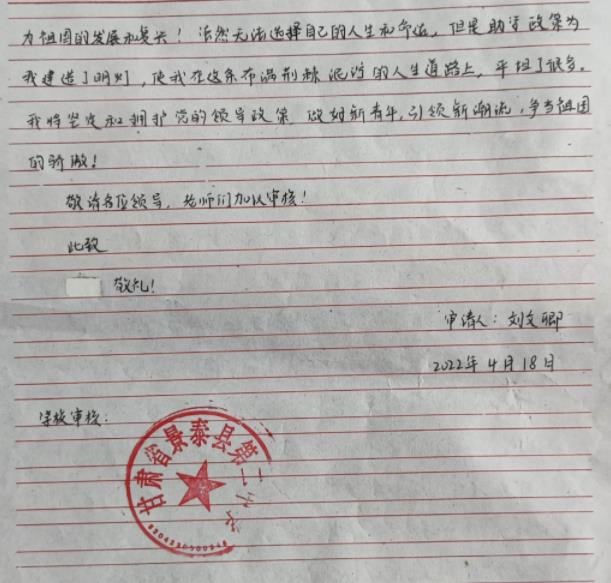 为祖国的发展和复兴！活然无法选择自己的人生和命运，但是助学政策为
我建造了明灯，使我在这条布满荆棘泥泞的人生道路上，平坦了很多。
我将坚定和拥护党的领导政策，做好新青年，引领新潮流，争当祖国
的骄傲！
敬请各位领导，老师们加以审核！
此致
敬礼！
申请人：刘文卿
2022年4月18日
学校审核：
甘肃省景泰县第二中学